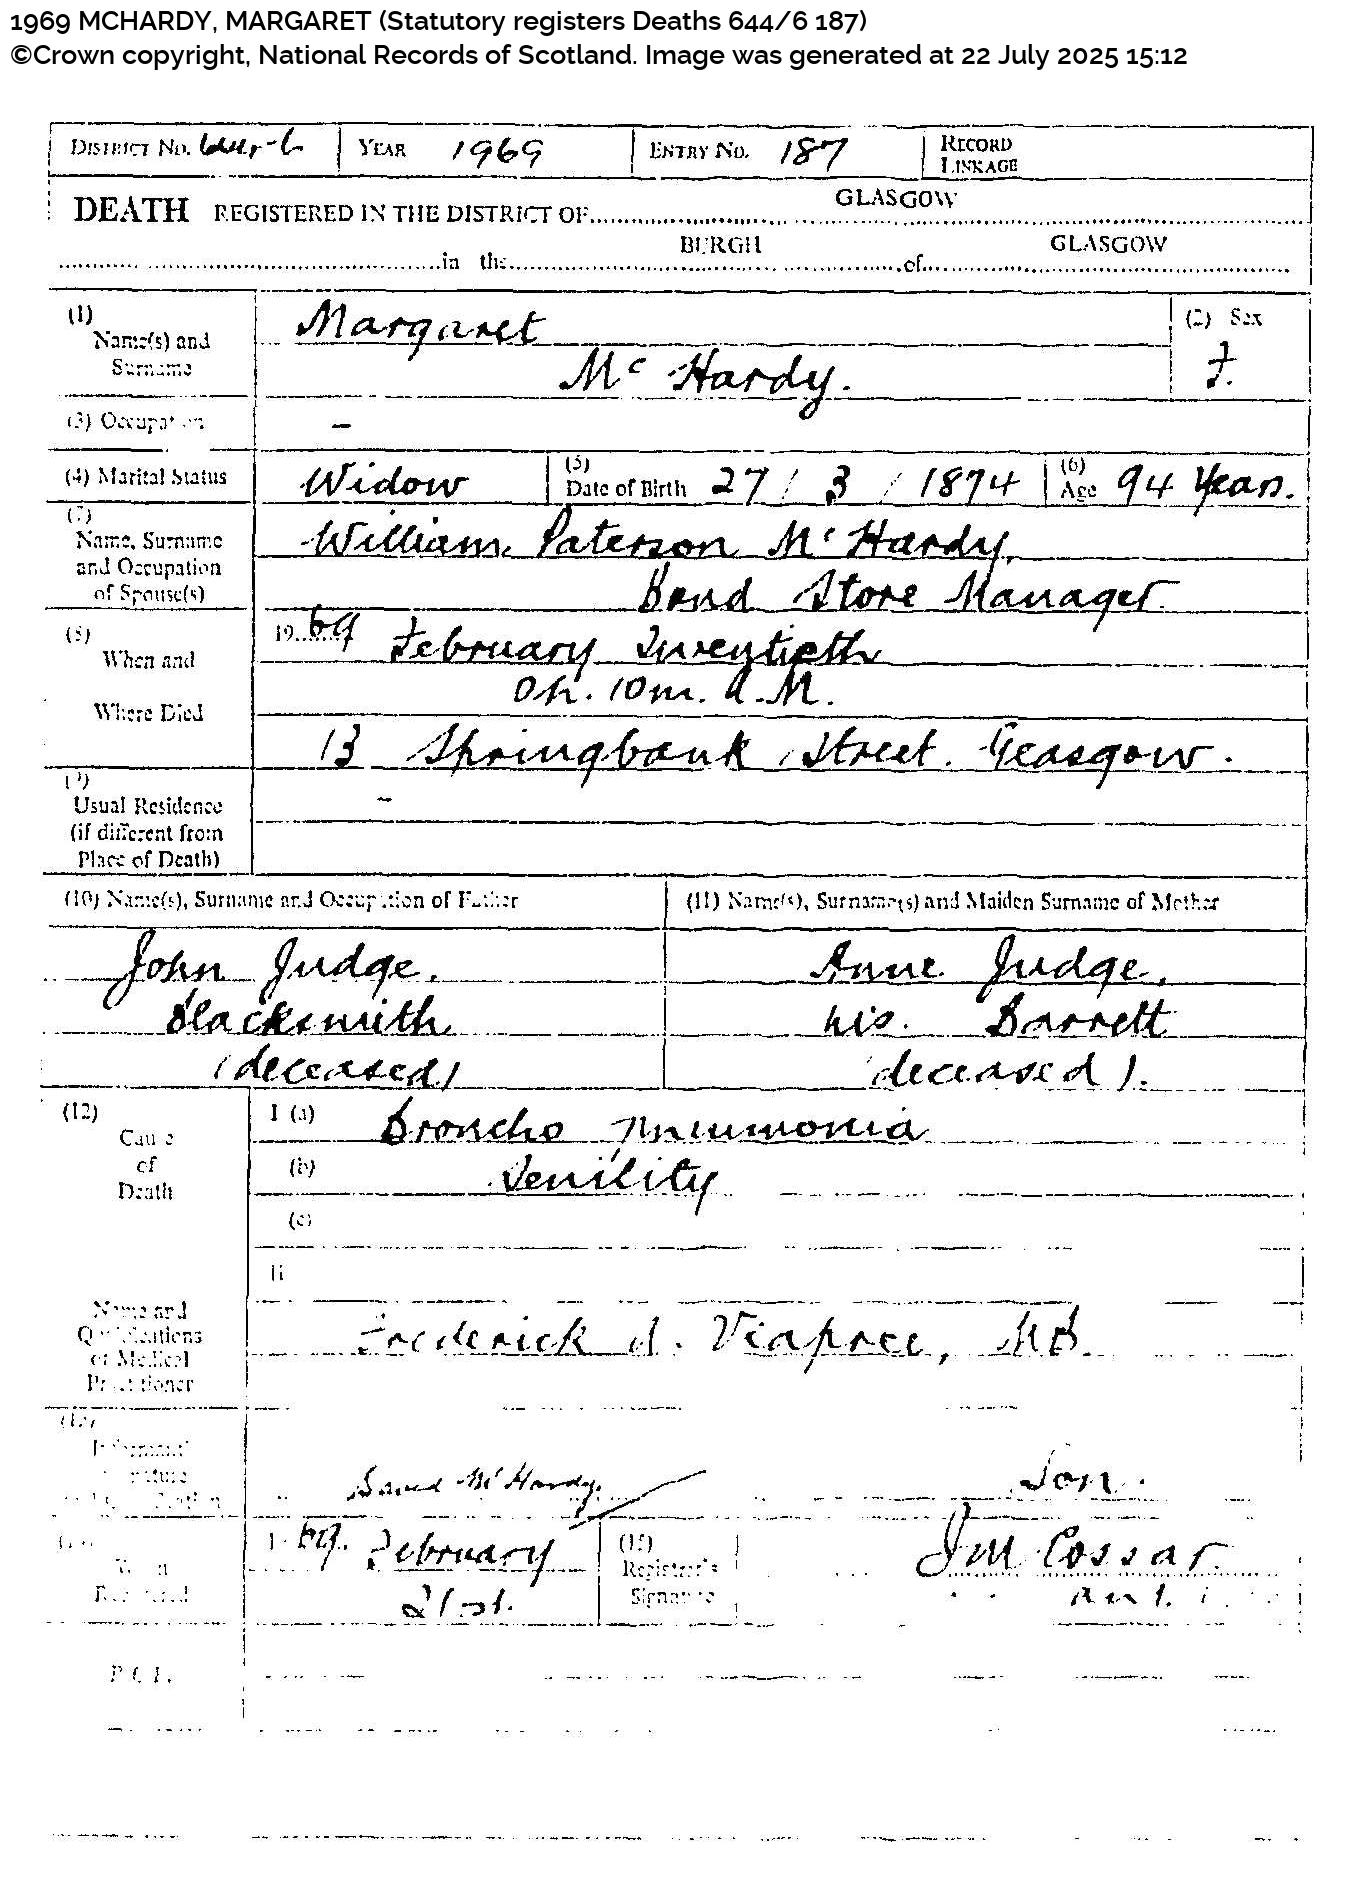 1969 MCHARDY, MARGARET (Statutory registers Deaths 644/6 187)
©Crown copyright, National Records of Scotland. Image was generated at 22 July 2025 15:12
DISTRICT NO. 644-6 YEAR 1969 ENTRY NO. 187 RECORD LINKAGE
DEATH REGISTERED IN THE DISTRICT OF GLASGOW
in the BURGH of GLASGOW
(1) Name(s) and Surname Margaret
Mc Hardy.
(2) Sex F.
(3) Occupation –
(4) Marital Status Widow (5) Date of Birth 27 / 3 / 1874 (6) Age 94 Years.
(7) Name, Surname and Occupation of Spouse(s) William Paterson Mc Hardy,
Bond Store Manager
(8) When and Where Died 1969 February Twentieth
0h. 10m. A.M.
13 Springbank Street. Glasgow.
(9) Usual Residence (if different from Place of Death) –
(10) Name(s), Surname and Occupation of Father (11) Name(s), Surname(s) and Maiden Surname of Mother
John Judge, Anne Judge,
Blacksmith M.S. Barrett
(deceased) (deceased).
(12) Cause of Death I (a) Broncho Pneumonia
(b) Senility
(c)
II
Name and Qualifications of Medical Practitioner Frederick A. Viapree, MB.
(13) Informant David McHardy. Son.
1969. February
21st.
(15) Registrar's Signature J M Cossar.